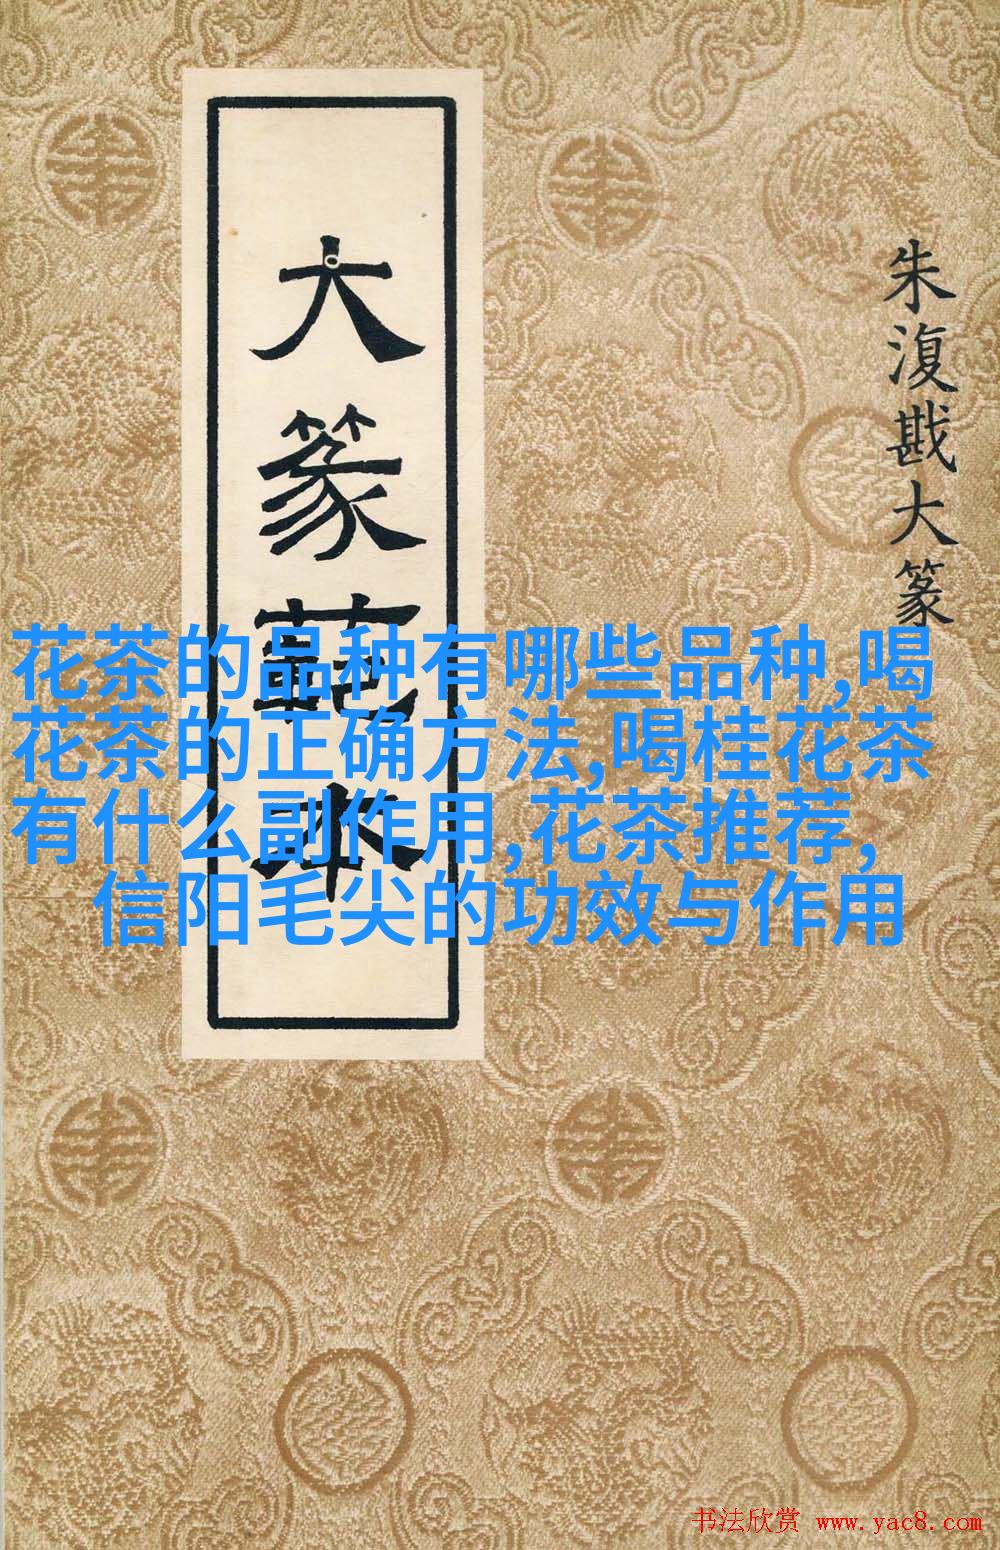 大篆範本
朱復戡大篆
花茶的品种有哪些品种,喝
花茶的正确方法,喝桂花茶
有什么副作用,花茶推荐,
信阳毛尖的功效与作用
书法欣赏 www.yac8.com